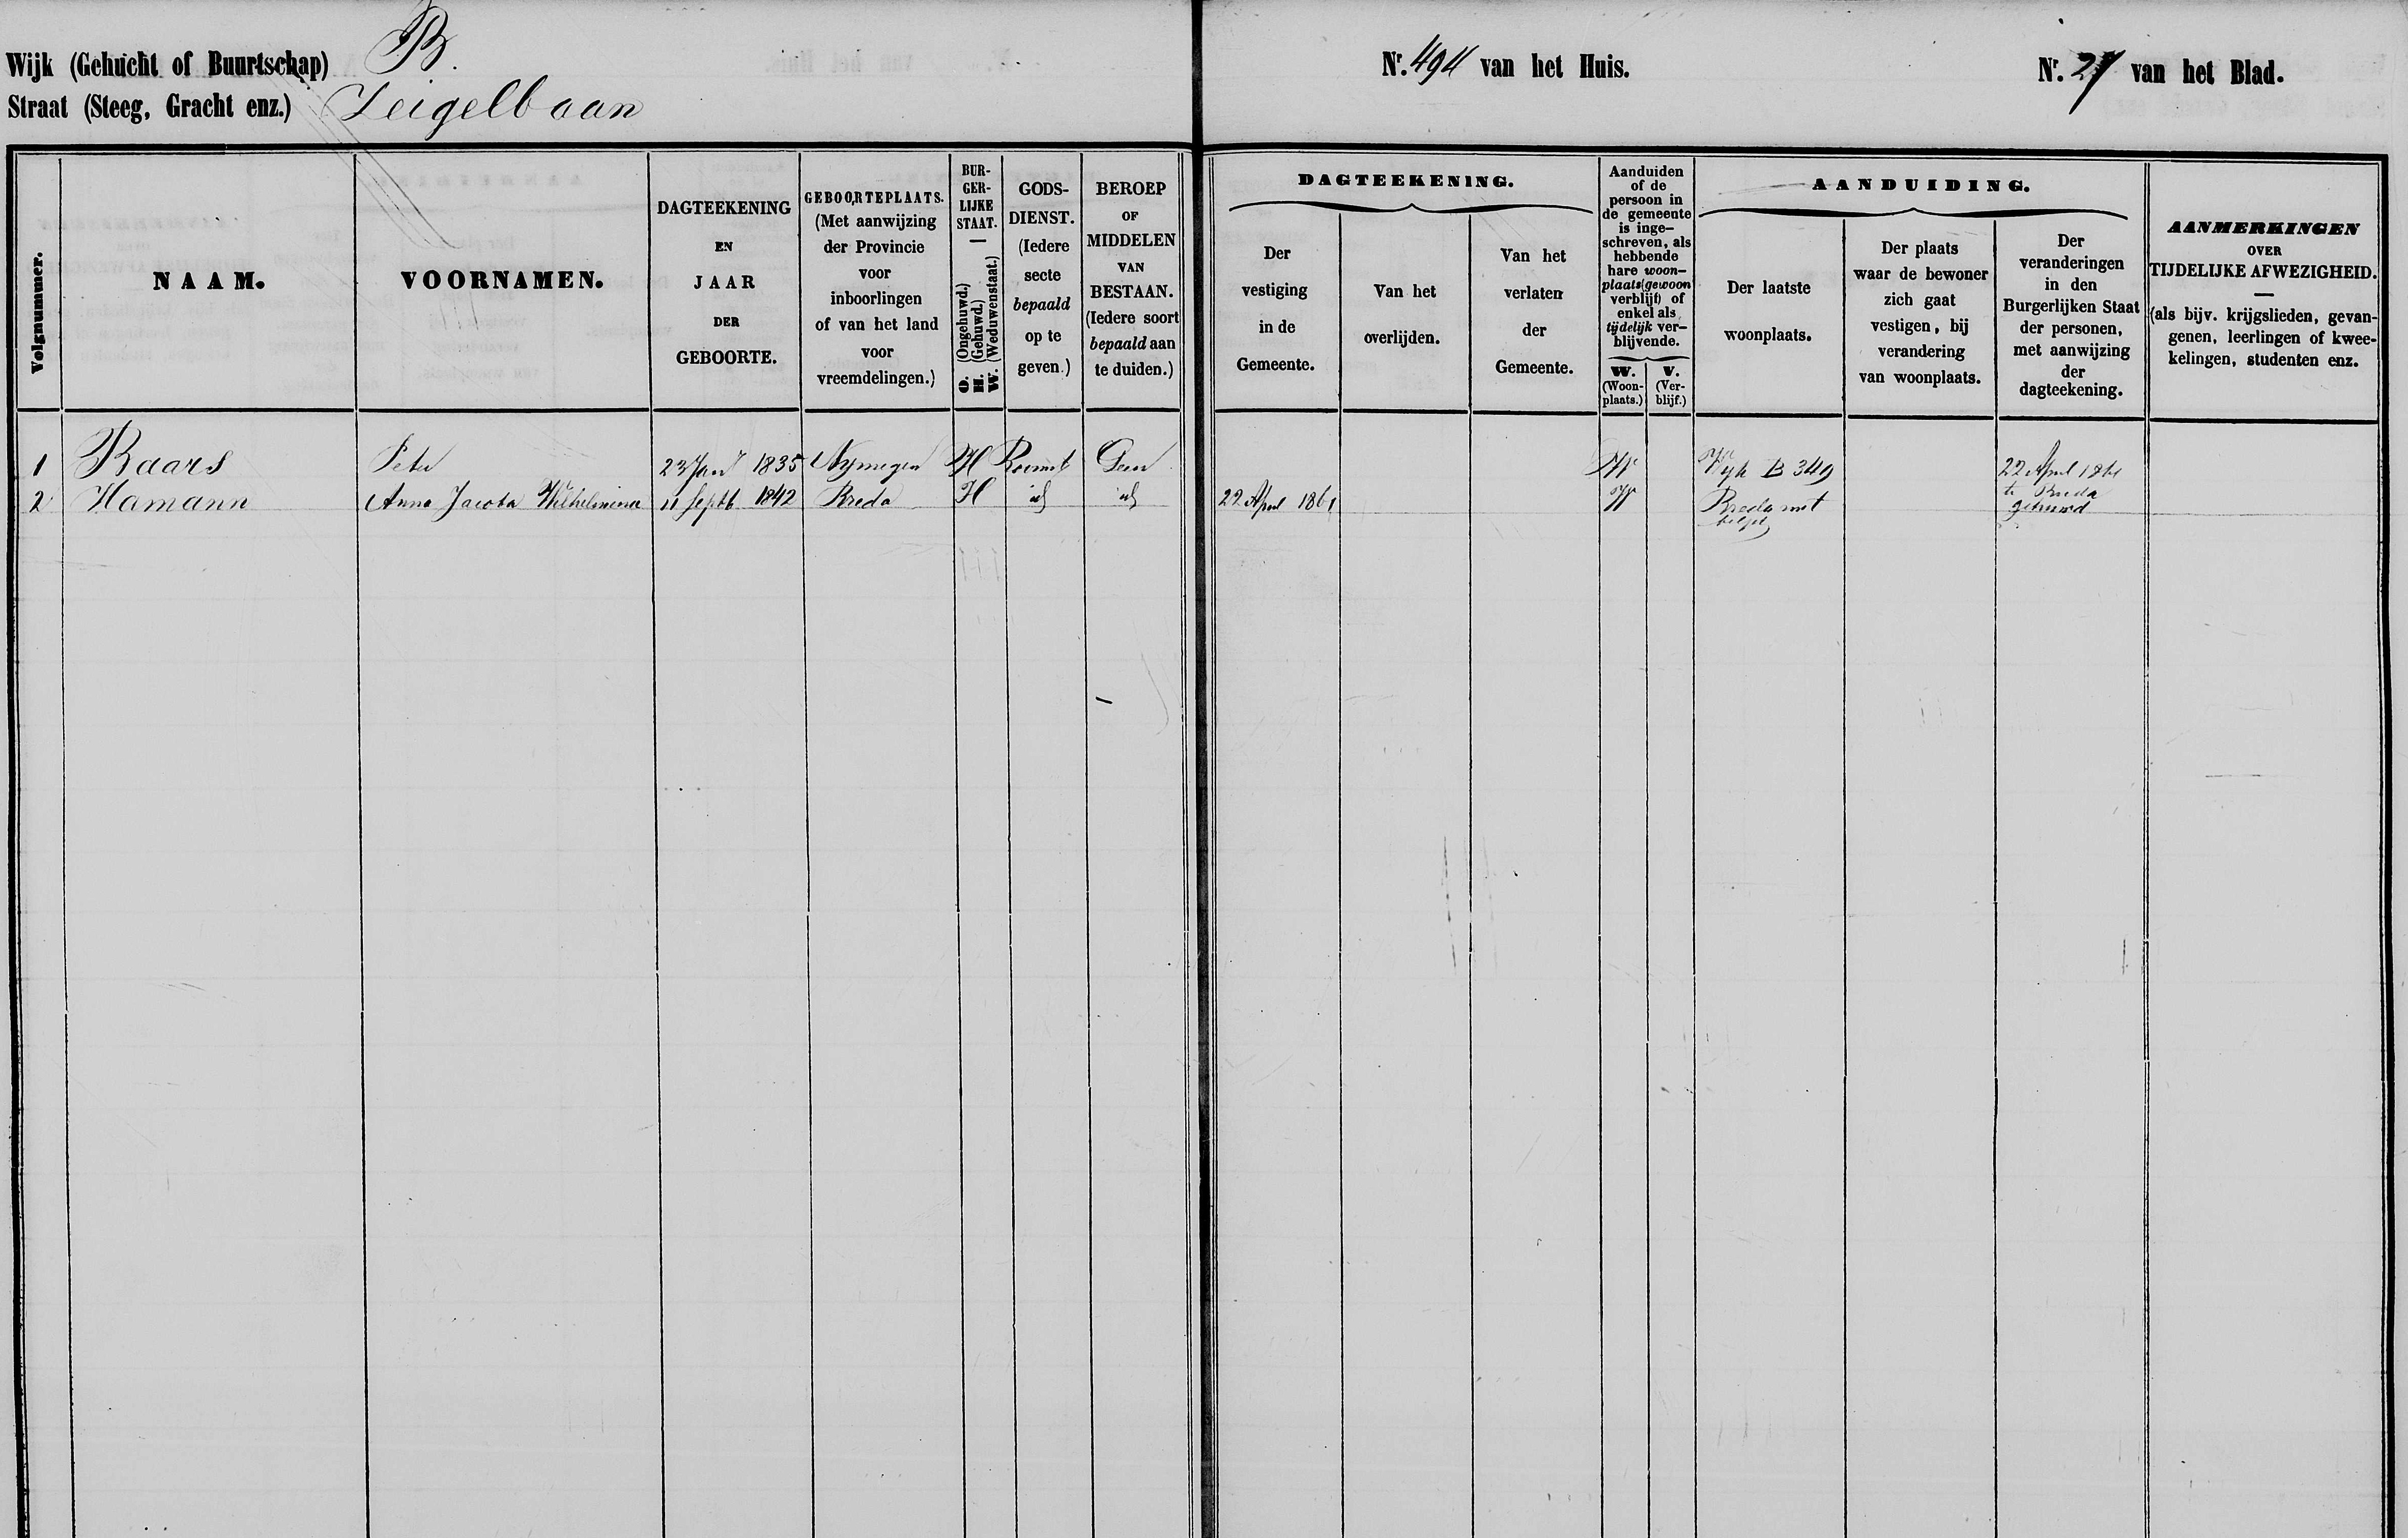 Wijk (Gehucht of Buurtschap) B.
Straat (Steeg, Gracht enz.) Zeigelbaan
Nr. 494 van het Huis.
Nr. 27 van het Blad.
Volgnummer.
NAAM.
VOORNAMEN.
DAGTEEKENING
EN
JAAR
DER
GEBOORTE.
GEBOORTEPLAATS.
(Met aanwijzing
der Provincie
voor
inboorlingen
of van het land
voor
vreemdelingen.)
BUR-
GER-
LIJKE
STAAT.
O. (Ongehuwd.)
H. (Gehuwd.)
W. (Weduwenstaat.)
GODS-
DIENST.
(Iedere
secte
bepaald
op te
geven.)
BEROEP
OF
MIDDELEN
VAN
BESTAAN.
(Iedere soort
bepaald aan
te duiden.)
DAGTEEKENING.
Der
vestiging
in de
Gemeente.
Van het
overlijden.
Van het
verlaten
der
Gemeente.
Aanduiden
of de
persoon in
de gemeente
is inge-
schreven, als
hebbende
hare woon-
plaats (gewoon
verblijf) of
enkel als
tijdelijk ver-
blijvende.
W.
(Woon-
plaats.)
V.
(Ver-
blijf.)
AANDUIDING.
Der laatste
woonplaats.
Der plaats
waar de bewoner
zich gaat
vestigen, bij
verandering
van woonplaats.
Der
veranderingen
in den
Burgerlijken Staat
der personen,
met aanwijzing
der
dagteekening.
AANMERKINGEN
OVER
TIJDELIJKE AFWEZIGHEID.
(als bijv. krijgslieden, gevan-
genen, leerlingen of kwee-
kelingen, studenten enz.
1 Baars Peter 23 Jany 1835 Nymegen H Roomsch Geen W Wyk B 349 22 April 1861
2 Hamann Anna Jacoba Wilhelmina 11 Septb 1842 Breda H id id 22 April 1861 W Breda met te Breda
gehuwd